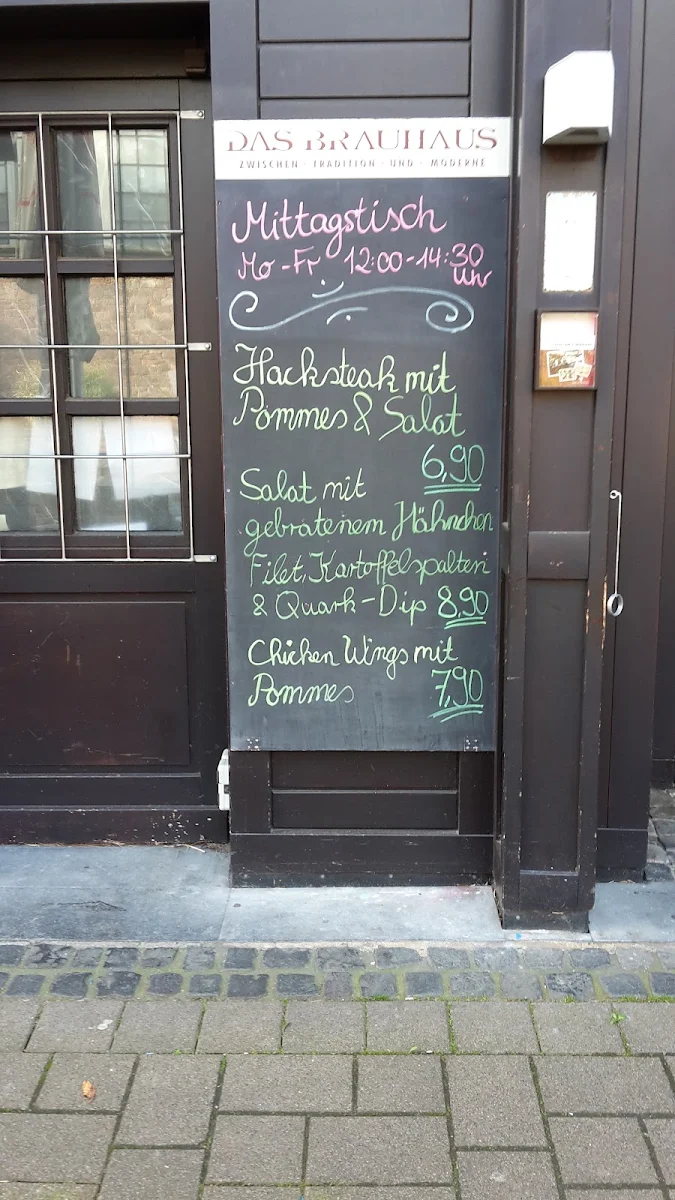 DAS BRAUHAUS
ZWISCHEN · TRADITION · UND · MODERNE
Mittagstisch
Mo-Fr 12:00-14:30
Uhr
Hacksteak mit
Pommes & Salat
6,90
Salat mit
gebratenem Hähnchen
Filet, Kartoffelspalten
& Quark-Dip 8,90
Chicken Wings mit
Pommes 7,90